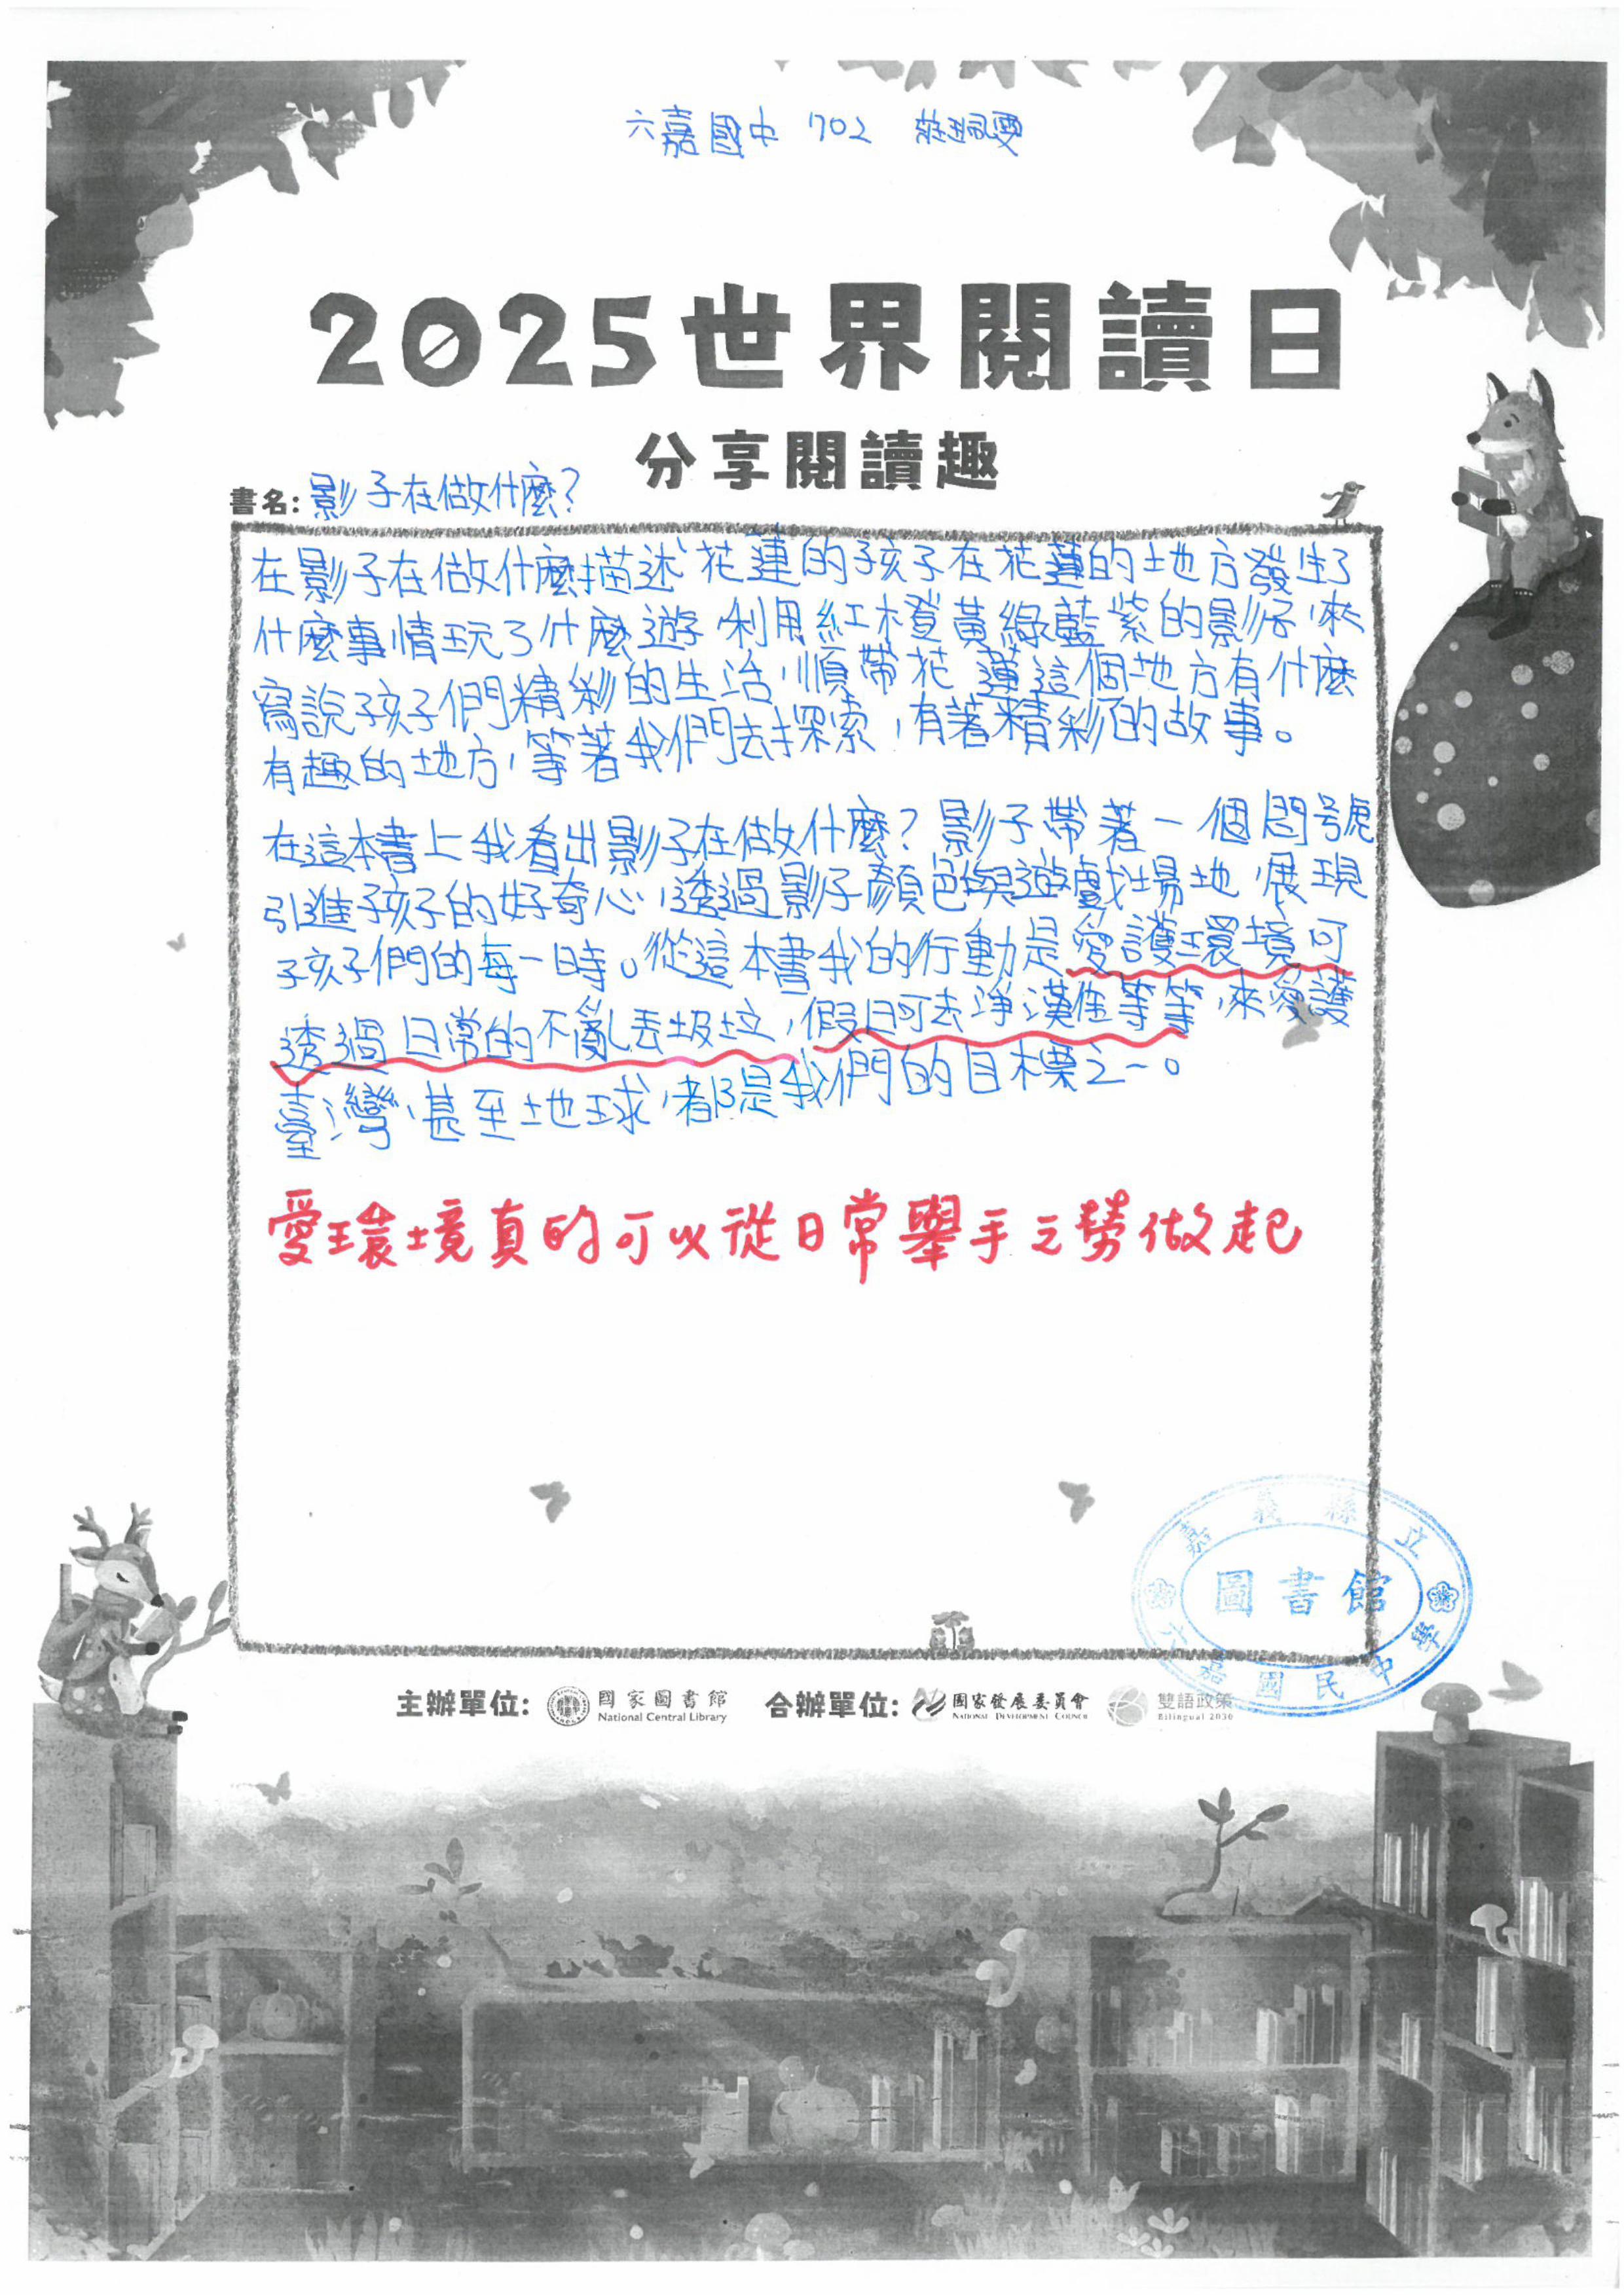 六嘉國中 702 莊珮雯
2025世界閱讀日
分享閱讀趣
書名: 影子在做什麼?
在影子在做什麼描述花蓮的孩子在花蓮的地方發生了
什麼事情玩了什麼遊,利用紅橙黃綠藍紫的影子,來
寫說孩子們精彩的生活,順帶花蓮這個地方有什麼
有趣的地方,等著我們去探索,有著精彩的故事。
在這本書上我看出影子在做什麼?影子帶著一個問號
引進孩子的好奇心,透過影子顏色與遊戲場地,展現
孩子們的每一時。從這本書我的行動是愛護環境可
透過日常的不亂丟垃圾,假日可去淨灘等等,來愛護
臺灣,甚至地球,都是我們的目標之一。
愛環境真的可以從日常舉手之勞做起
嘉義縣立
圖書館
六嘉國民中學
主辦單位: 國家圖書館 National Central Library 合辦單位: 國家發展委員會 NATIONAL DEVELOPMENT COUNCIL 雙語政策 Bilingual 2030